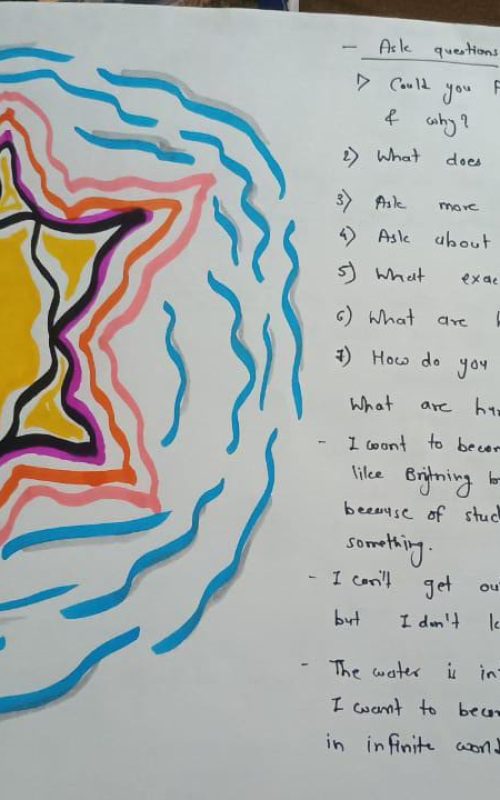 - Ask questions
1) Could you
& why?
2) What does
3) Ask more
4) Ask about
5) What exac
6) What are
7) How do you
What are
- I want to becom
like
because of stuc
something.
- I can't get ou
but I don't
- The water is in
I want to becom
in infinite worl